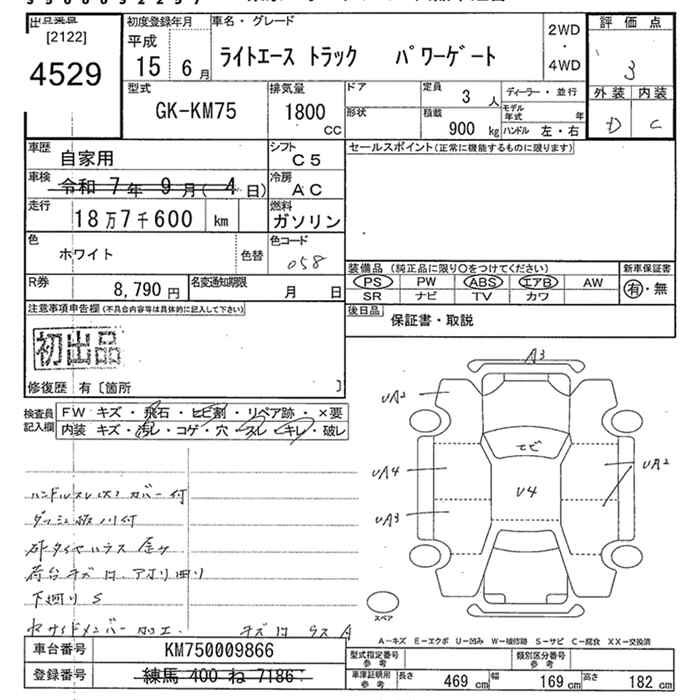 [2122]
4529
初度登録年月
平成
15 6 月
車名・グレード
ライトエース トラック パワーゲート
2WD
・
4WD
評価点
3
外装 内装
D C
型式
GK-KM75
排気量
1800
CC
ドア
形状
定員
3 人
積載
900 kg
ディーラー・並行
モデル年式 年
ハンドル 左・右
車歴
自家用
シフト
C5
車検
令和 7年 9月( 4日)
冷房
AC
走行
18万7千600 km
燃料
ガソリン
色
ホワイト
色替
色コード
058
R券
8,790 円
名変通知期限
月 日
セールスポイント(正常に機能するものに限ります)
装備品 (純正品に限り○をつけてください)
PS PW ABS エアB AW
SR ナビ TV カワ
新車保証書
有・無
後日品
保証書・取説
注意事項申告欄(不具合内容等は具体的に記入して下さい)
初出品
修復歴 有〔箇所 〕
検査員記入欄
FW キズ・飛石・ヒビ割・リペア跡・×要
内装 キズ・汚レ・コゲ・穴・スレ・キレ・破レ
A3
UA2
トビ
UA4
U4
UA2
UA3
ハンドルスレ
カバー付
荷台キズ
下廻りS
スペア
A－キズ E－エクボ U－凹み W－補修跡 S－サビ C－腐食 XX－交換済
車台番号
KM750009866
登録番号
練馬 400 ね 7186
型式指定番号
参考
類別区分番号
参考
車庫証明用
参考
長さ 469 cm 幅 169 cm 高さ 182 cm